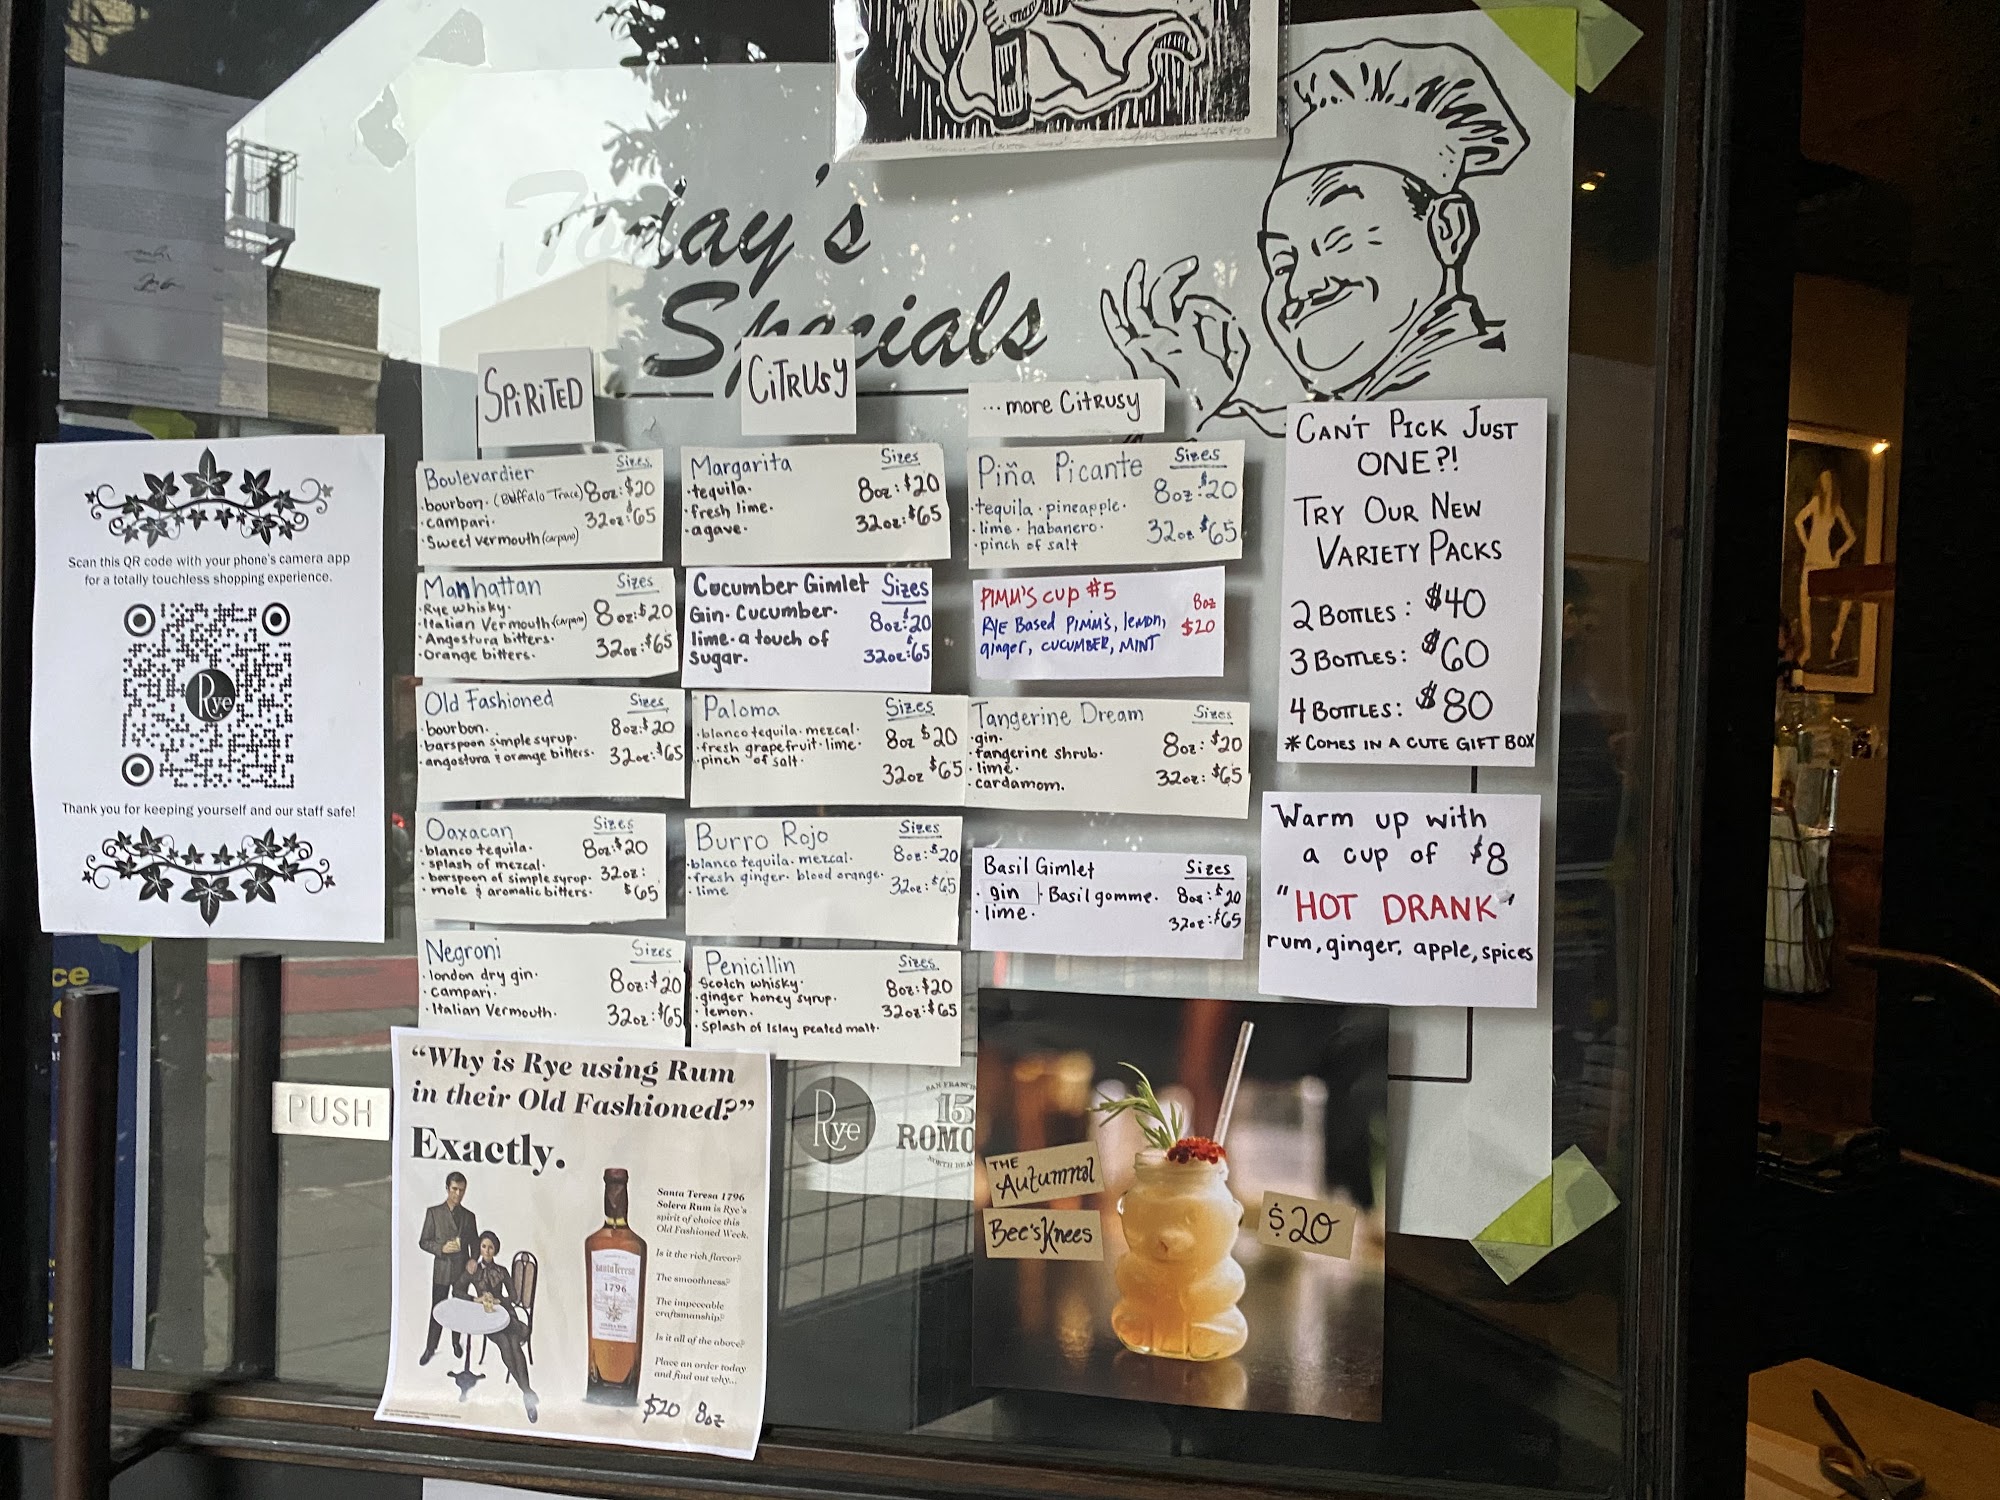 Today's
Specials
SPIRITED
CITRUSY
...more CITRUSY
Scan this QR code with your phone's camera app
for a totally touchless shopping experience.
Rye
Thank you for keeping yourself and our staff safe!
Boulevardier Sizes
bourbon. (Buffalo Trace) 8oz:$20
·campari. 32oz:$65
·Sweet vermouth (carpano)
Manhattan Sizes
·Rye whisky. 8oz:$20
·Italian Vermouth (carpano)
·Angostura bitters. 32oz:$65
·Orange bitters.
Old Fashioned Sizes
·bourbon. 8oz:$20
·barspoon simple syrup.
·angostura & orange bitters. 32oz:$65
Oaxacan Sizes
·blanco tequila. 8oz:$20
·splash of mezcal.
·barspoon of simple syrup. 32oz:
·mole & aromatic bitters. $65
Negroni Sizes
·london dry gin. 8oz:$20
·Campari.
·Italian Vermouth. 32oz:$65
Margarita Sizes
·tequila. 8oz:$20
·fresh lime.
·agave. 32oz:$65
Cucumber Gimlet Sizes
Gin· Cucumber. 8oz:$20
lime· a touch of
Sugar. 32oz:$65
Paloma Sizes
·blanco tequila·mezcal.
·fresh grapefruit·lime. 8oz $20
·pinch of salt. 32oz $65
Burro Rojo Sizes
·blanco tequila·mezcal. 8oz:$20
·fresh ginger· blood orange.
·lime 32oz:$65
Penicillin Sizes
·Scotch whisky. 8oz:$20
·ginger honey syrup.
·lemon. 32oz:$65
·splash of Islay peated malt.
Piña Picante Sizes
·tequila·pineapple. 8oz:$20
·lime·habanero.
·pinch of salt 32oz $65
PIMM'S CUP #5 8oz
RYE Based PIMM'S, lemon, $20
ginger, CUCUMBER, MINT
Tangerine Dream Sizes
·gin.
·tangerine shrub. 8oz:$20
·lime.
·cardamom. 32oz:$65
Basil Gimlet Sizes
·gin ·Basil gomme. 8oz:$20
·lime. 32oz:$65
CAN'T PICK JUST
ONE?!
TRY OUR NEW
VARIETY PACKS
2 BOTTLES: $40
3 BOTTLES: $60
4 BOTTLES: $80
* COMES IN A CUTE GIFT BOX
Warm up with
a cup of $8
"HOT DRANK"
rum, ginger, apple, spices
PUSH
"Why is Rye using Rum
in their Old Fashioned?"
Exactly.
Santa Teresa 1796
Solera Rum is Rye's
spirit of choice this
Old Fashioned Week.
Is it the rich flavor?
The smoothness?
The impeccable
craftsmanship?
Is it all of the above?
Place an order today
and find out why...
Santa Teresa
1796
$20 8oz
Rye
SAN FRANC
15
ROMO
NORTH BEA
THE
Autumnal
Bee's Knees
$20
ce